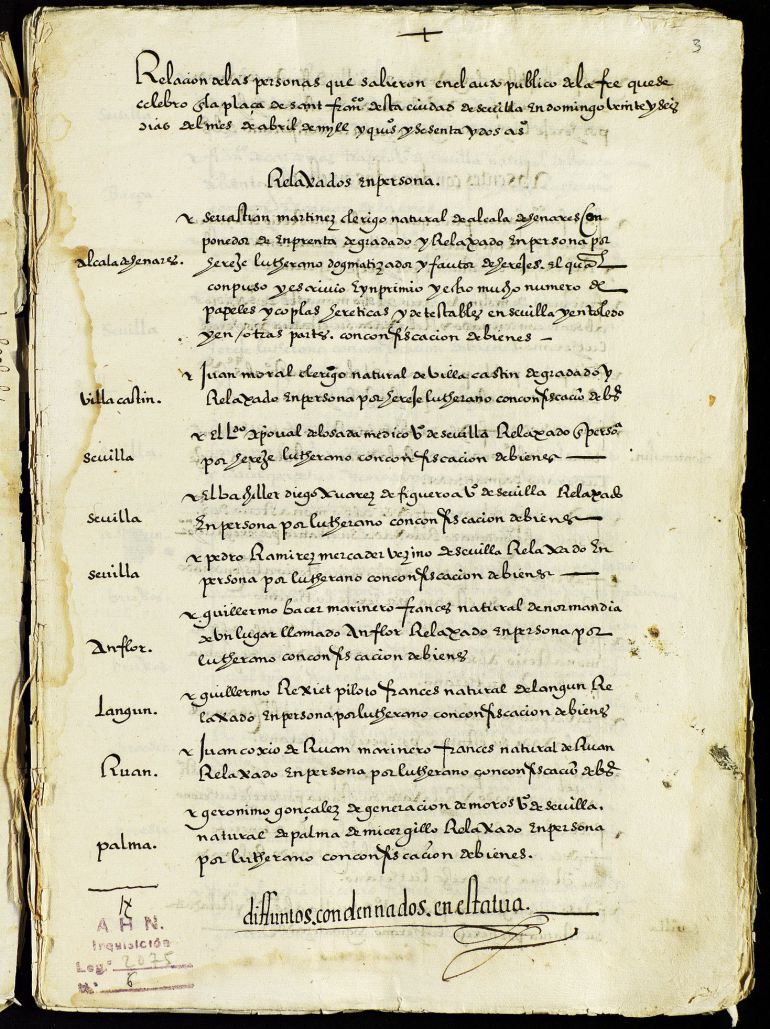 3
Relacion de las personas que salieron en el aucto publico de la fee que se
celebro en la plaça de sant franco desta ciudad de sevilla en domingo veinte y seis
dias del mes de abril de myll y quis y sesenta y dos as
Relaxados en persona.
r sevastian martinez clerigo natural de alcala de henares Con
ponedor de enprenta degradado y Relaxado en persona por
alcala de henares.
hereje lutherano dogmatizador y fautor de herejes. el qual
conpuso y escrivio eynprimio y echo mucho numero de
papeles y coplas hereticas y detestables en sevilla y en toledo
y en / otras partes. con confiscacion de bienes
r Juan moral clerigo natural de villa castin degradado y
villa castin.
Relaxado en persona por hereje lutherano con confiscacio de bs
r El Ldo xpoual de losada medico vo de sevilla Relaxado en persoa
sevilla
por hereje lutherano con confiscacion de bienes
r El bachiller diego xuarez de figueroa vo de sevilla Relaxado
sevilla
En persona por lutherano con confiscacion de bienes
r pedro Ramirez mercader vezino de sevilla Relaxado En
sevilla
persona por lutherano con confiscacion de bienes
r guillermo bacer marinero frances natural de normandia
de vn lugar llamado Anflor Relaxado en persona por
Anflor.
lutherano con confiscacion de bienes
r guillermo Rexiet piloto frances natural de langun Re
Langun.
laxado en persona por lutherano con confiscacion de bienes
r Juan coxio de Ruan marinero frances natural de Ruan
Ruan.
Relaxado en persona por lutherano con confiscacio de bs
r geronimo gonçalez de generacion de moros vo de sevilla.
natural de palma de micergillo Relaxado en persona
palma.
por lutherano con confiscacion de bienes.
IX
diffuntos. condennados. en estatua.
A H N.
Inquisición
Leg.o 2075
N.o 6